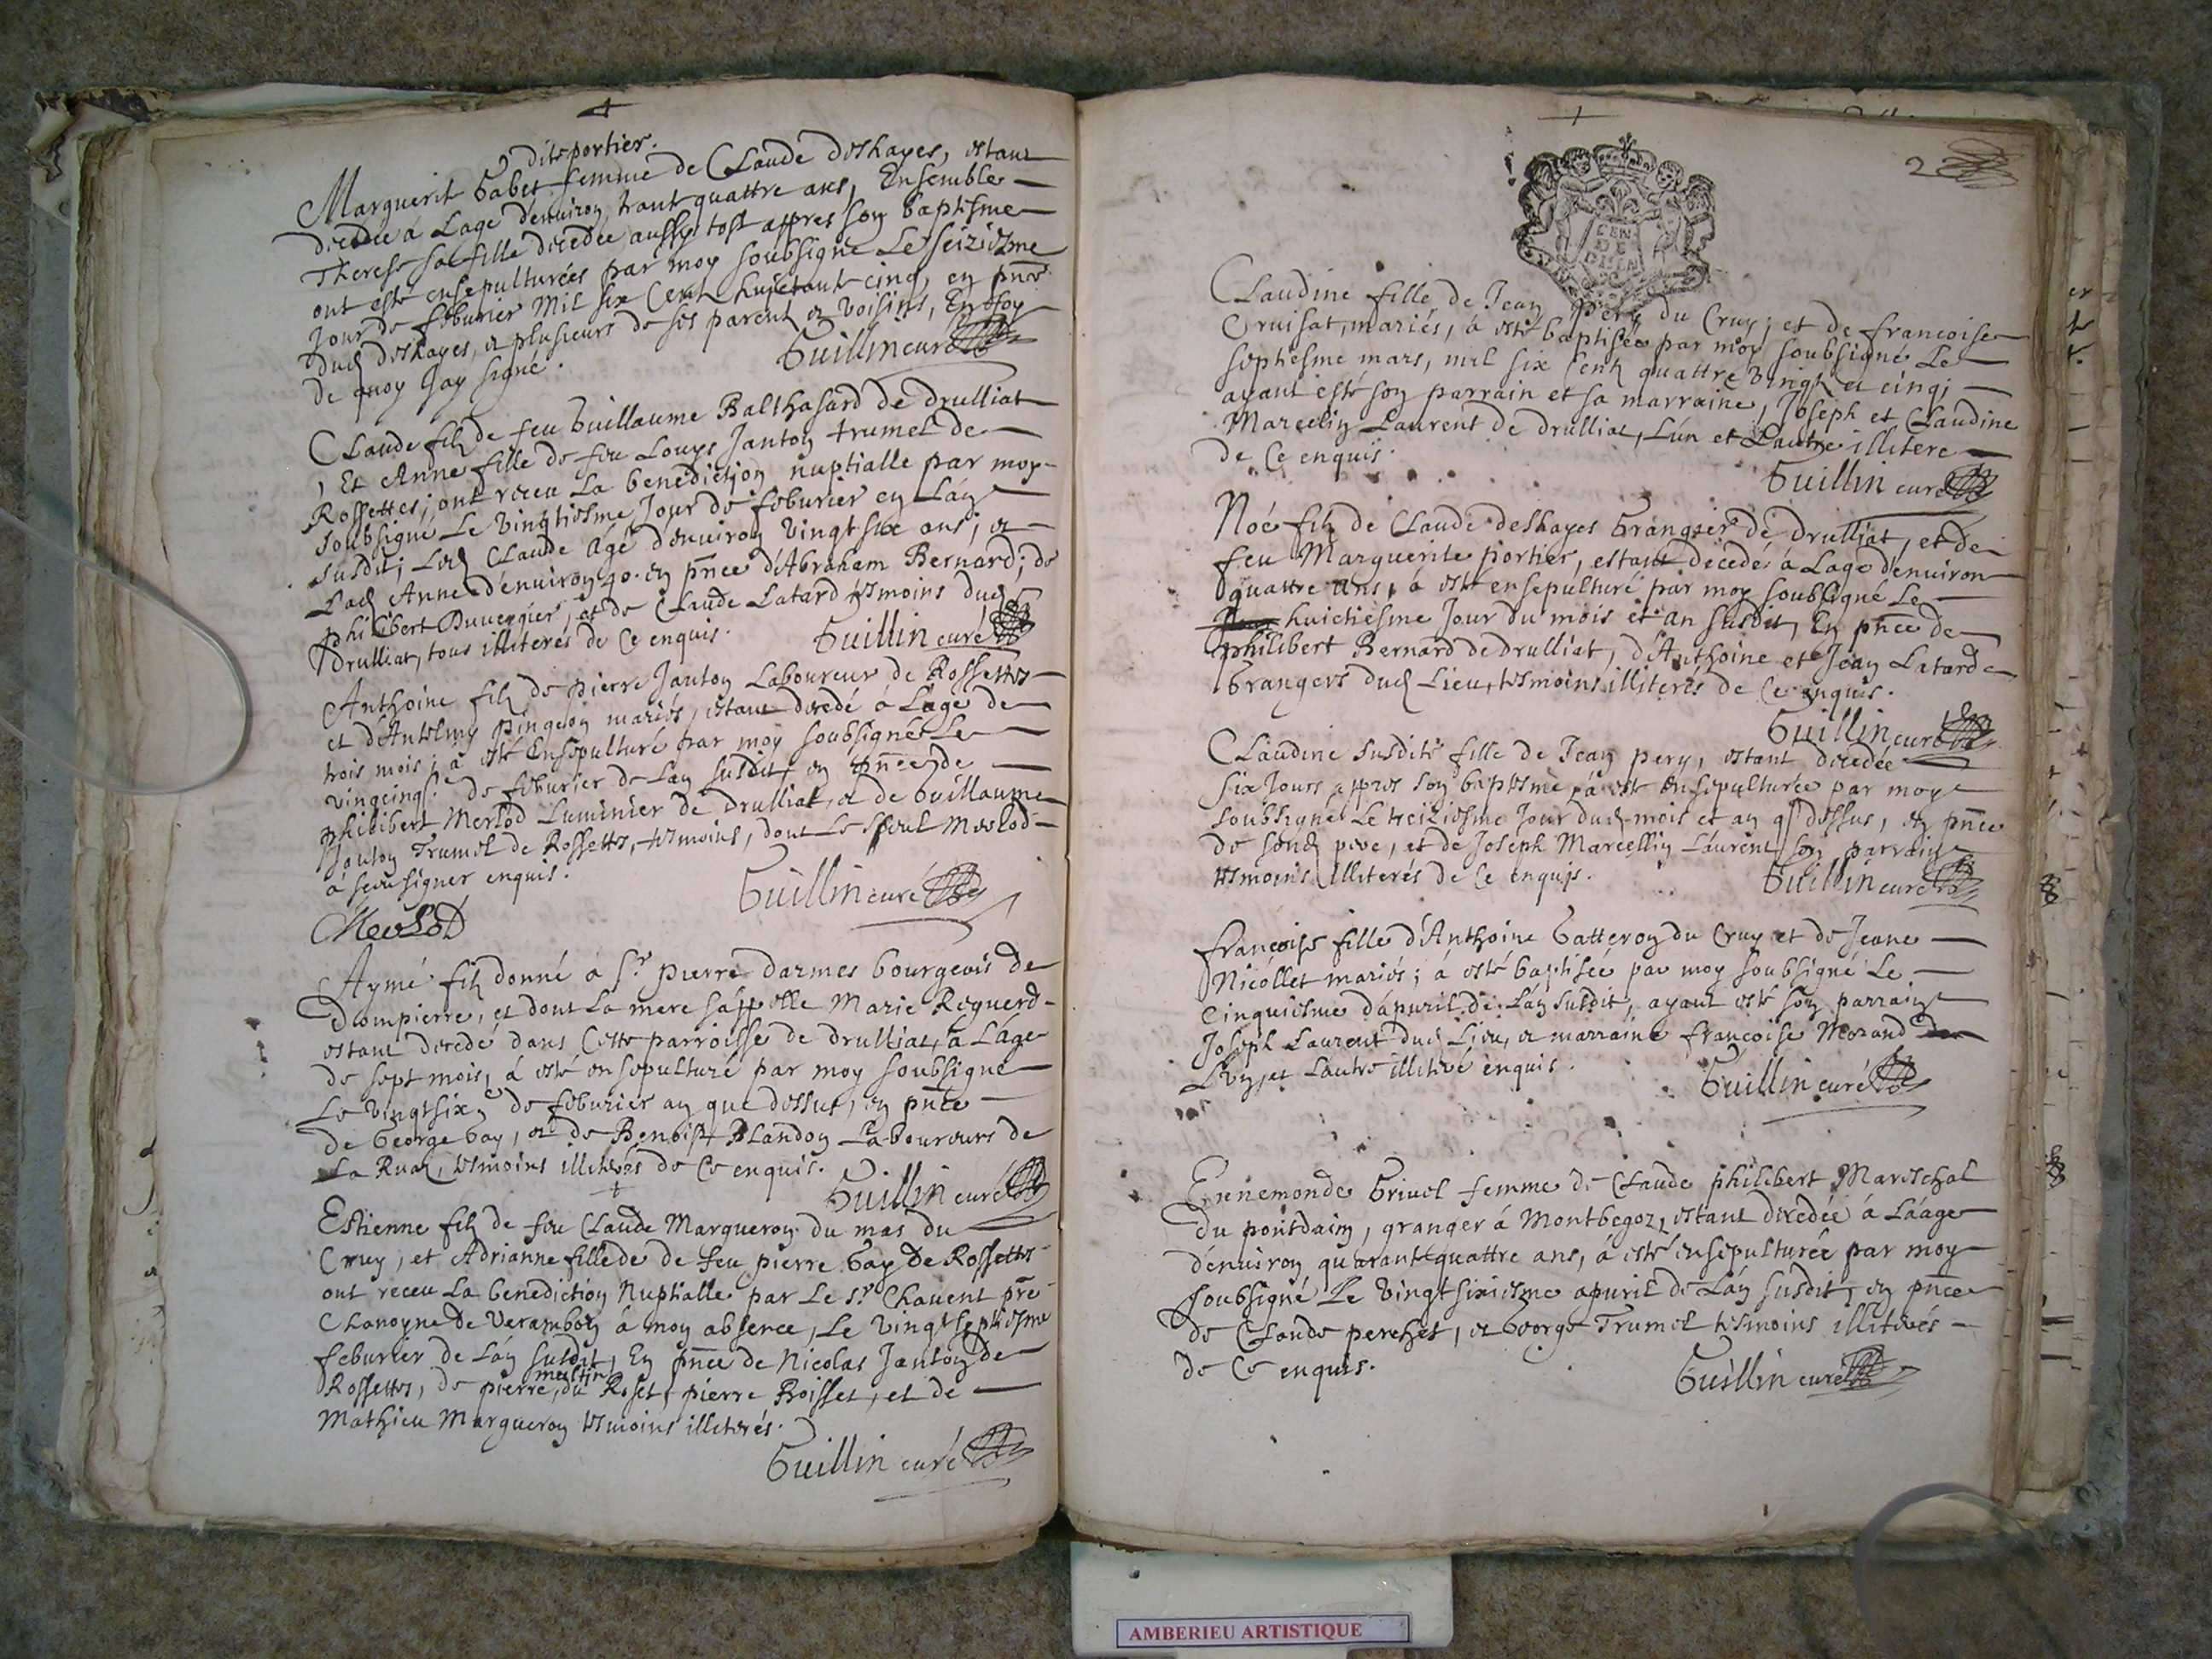 dite portier.
Marguerit Gabet femme de Claude deshayes, estant
decedée á Lage denuiron trant quattre ans, Ensemble
Therese sa fille decedée aussy tost appres son baptisme
ont esté ensepulturées par moy soubsigné Le seiziesme
Jour de feburier Mil six Cent huictante cinq, en pñce
dud deshayes, et plusieurs de ses parent et voisins, En foy
de quoy Jay signé.
Guillin curé
Claude filz de feu Guillaume Balthasard de drulliat
, Et Anne fille de feu Louys Janton trumel de
Rossettes; ont receu La benediction nuptialle par moy
soubsigné Le vingtiesme Jour de feburier en Lan
susdit; Led Claude agé denuiron vingt six ans; et
Lad Anne denuiron 40. en pñce d'Abraham Bernard; de
philibert Duuergier, et de Claude Latard tesmoins dud
drulliat, tous illiteres de Ce enquis.
Guillin curé
Anthoine filz de pierre Janton Laboureur de Rossettes
et d'Antelmy pingeon mariés, estant decedé á Lage de
trois mois; á esté Ensepulturé par moy soubsigné Le
vingcinq.e de feburier de Lan susdit, en pñce de
philibert Merlod Luminier de Drulliat, et de Guillaume
Janton Trumel de Rossettes, tesmoins, dont Le seul Merlod
á sceu signer enquis.
Guillin curé
Merlod
Aymé filz donné á Sr. pierre darmes bourgeois de
Dompierre, et dont La mere sáppelle Marie Reguerd
estant decedé dans Cette parroisse de drulliat, á Láge
de sept mois, á esté ensepulturé par moy soubsigné
Le vingtsixe de feburier an que dessus, en pñce
de George Gay, et de Benoist Blandon Laboureurs de
La Ruaz, tesmoins illiterés de Ce enquis.
Guillin curé
Estienne filz de feu Claude Margueron du mas du
Cruy, et Adrianne fille de de feu pierre Gay de Rossettes
ont receu La benediction Nuptialle par Le sr. Chauent pre
Chanoyne de Varambon á moy absence, Le vingtseptiesme
feburier de Lán susdit, En pñce de Nicolas Janton de
Rossettes, de pierre, du Roset, pierre Boisset, et de
Mathieu Margueron tesmoins illiterés.
Guillin curé
2
GEN
DE
Claudine fille de Jean pery du Cruy; et de francoise
Cruisat, mariés, á esté baptisée par moy soubsigné Le
septiesme mars, mil six Cent quattre vingt et cinq;
ayant esté son parrain et sa marraine, Joseph et Claudine
Marcelin Laurent de drulliat, Lún et Lautre illitere
de Ce enquis.
Guillin curé
Noé filz de Claude deshayes Grangier de drulliat, et de
feu Marguerite portier, estant decedé á Lage denuiron
quattre ans, á esté ensepulturé par moy soubsigné Le
huictiesme Jour du mois et an susdit, En pñce de
philibert Bernard de drulliat, d'Anthoine et Jean Latard
Grangers dud Lieu, tesmoins illiterés de Ce enquis.
Guillin curé
Claudine susdite fille de Jean pery, estant decedée
six Jours appres son baptesme, á esté Ensepulturée par moy
soubsigné Le treiziesme Jour dud mois et an q dessus, en pñce
de sond pere, et de Joseph Marcellin Láurent son parrain
tesmoins illiterés de Ce enquis.
Guillin curé
francoise fille d'Anthoine Gatteron du Cruy et de Jeane
Nicollet mariés; á esté baptisée par moy soubsigné Le
cinquiesme dápuril de Lán susdit, ayant esté son parrain
Joseph Laurent dud Lieu, et marraine francoise Morand
Lvn, et Lautre illiteré enquis.
Guillin curé
Ennemonde Griuel femme de Claude philibert Mareschal
du pontdain, granger á Montbegoz, estant decedée á Láage
dénuiron quarantequattre ans, á esté ensepulturée par moy
soubsigné Le vingtsixiesme apuril de Lán susdit, en pñce
de Claude perchet, et George Trumel tesmoins illiterés
de Ce enquis.
Guillin curé
AMBERIEU ARTISTIQUE